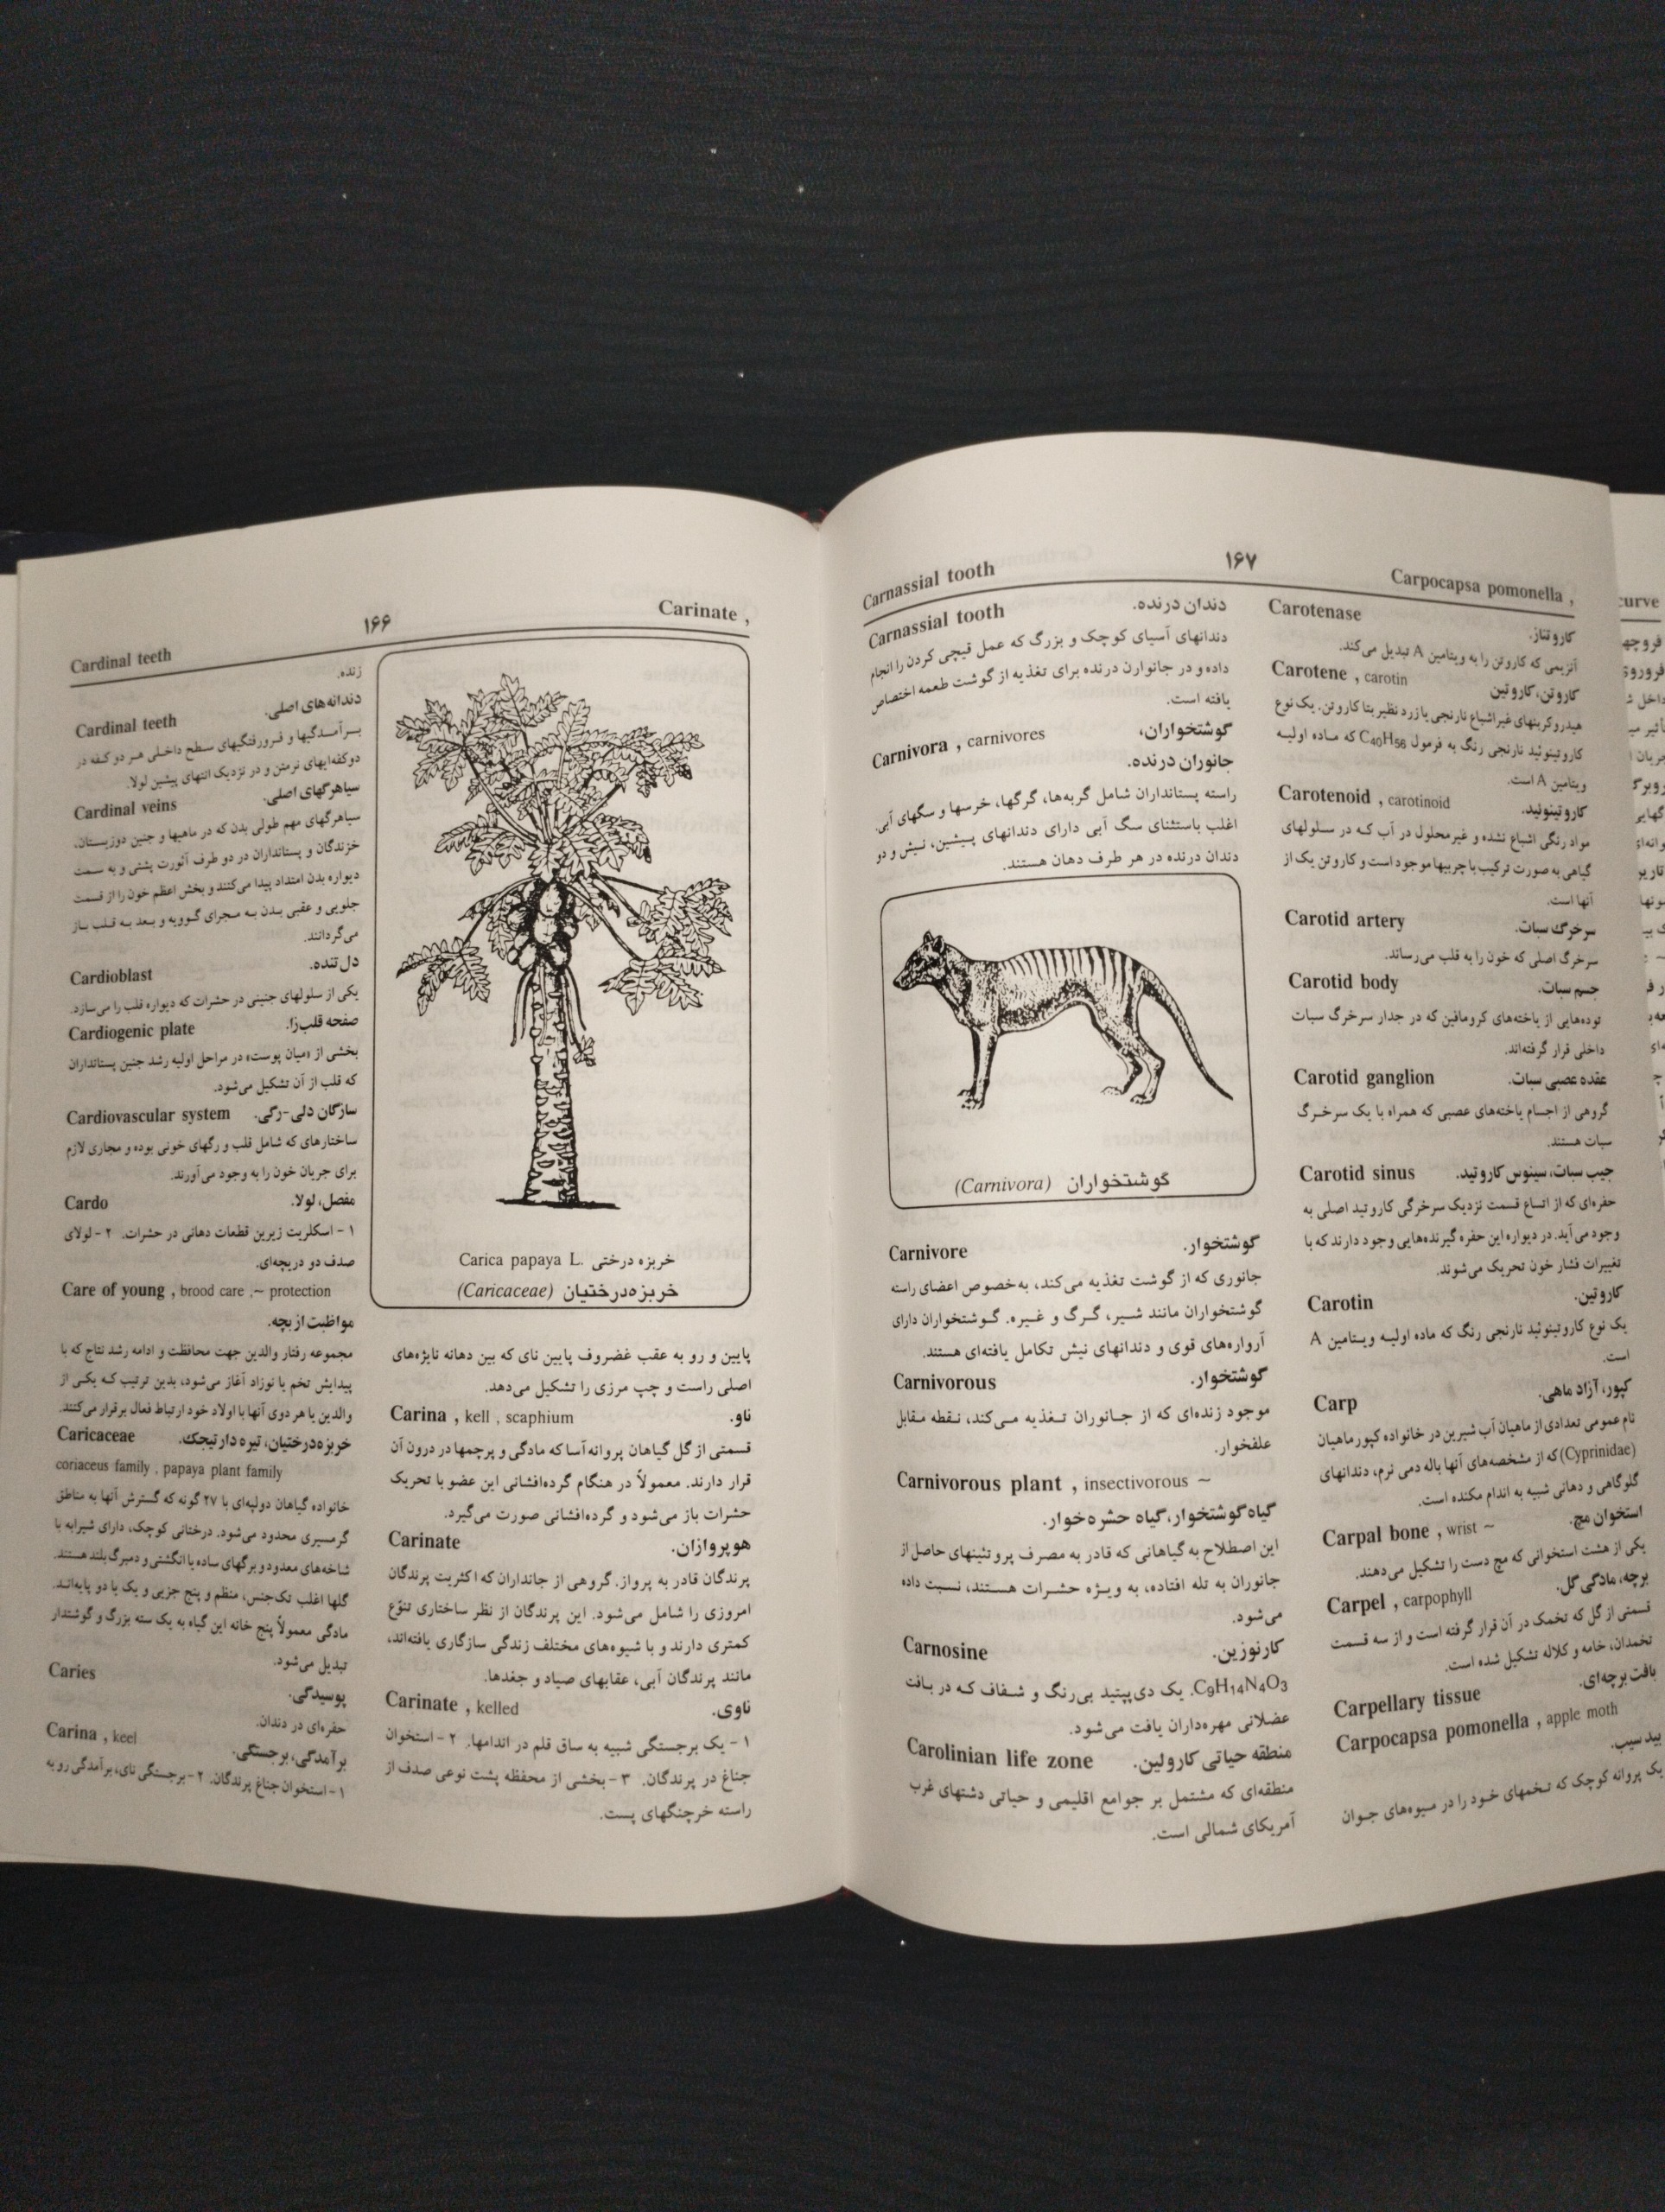 Cardinal teeth ۱۶۶ Carinate ,
زنده.
Cardinal teeth دندانه‌های اصلی.
بـرآمـدگیها و فـرورفتگیهای سطح داخـلی هـر دو کـفه در
دوکفه‌ایهای نرمتن و در نزدیک انتهای پیشین لولا.
Cardinal veins سیاهرگهای اصلی.
سیاهرگهای مهم طولی بدن که در ماهیها و جنین دوزیستان،
خزندگان و پستانداران در دو طرف آئورت پشتی و به سمت
دیواره بدن امتداد پیدا می‌کنند و بخش اعظم خون را از قسمت
جلویی و عقبی بـدن بـه مـجرای گـوویه و بـعد بـه قـلب بـاز
می‌گردانند.
Cardioblast دل تنده.
یکی از سلولهای جنینی در حشرات که دیواره قلب را می‌سازد.
Cardiogenic plate صفحه قلب‌زا.
بخشی از «میان پوست» در مراحل اولیه رشد جنین پستانداران
که قلب از آن تشکیل می‌شود.
Cardiovascular system سازگان دلی-رگی.
ساختارهای که شامل قلب و رگهای خونی بوده و مجاری لازم
برای جریان خون را به وجود می‌آورند.
Cardo مفصل، لولا.
۱ - اسکلریت زیرین قطعات دهانی در حشرات. ۲ - لولای
صدف دو دریچه‌ای.
Care of young , brood care ,~ protection
مواظبت از بچه.
مجموعه رفتار والدین جهت محافظت و ادامه رشد نتاج که با
پیدایش تخم یا نوزاد آغاز می‌شود، بدین ترتیب کـه یکـی از
والدین یا هر دوی آنها با اولاد خود ارتباط فعال برقرار می‌کنند.
Caricaceae خربزه‌درختیان، تیره دارتیجک.
coriaceus family , papaya plant family
خانواده گیاهان دولپه‌ای با ۲۷ گونه که گسترش آنها به مناطق
گرمسیری محدود می‌شود. درختانی کوچک، دارای شیرابه با
شاخه‌های معدود و برگهای ساده یا انگشتی و دمبرگ بلند هستند.
گلها اغلب تک‌جنس، منظم و پنج جزیی و یک یا دو پایه‌انـد.
مادگی معمولاً پنج خانه این گیاه به یک سته بزرگ و گوشتدار
تبدیل می‌شود.
Caries پوسیدگی.
حفره‌ای در دندان.
Carina , keel برآمدگی، برجستگی.
۱ - استخوان جناغ پرندگان. ۲ - برجستگی نای، برآمدگی رو به
Carica papaya L. خربزه درختی
(Caricaceae) خربزه‌درختیان
پایین و رو به عقب غضروف پایین نای که بین دهانه نایژه‌های
اصلی راست و چپ مرزی را تشکیل می‌دهد.
Carina , kell , scaphium ناو.
قسمتی از گل گیاهان پروانه‌آسا که مادگی و پرچمها در درون آن
قرار دارند. معمولاً در هنگام گرده‌افشانی این عضو با تحریک
حشرات باز می‌شود و گرده‌افشانی صورت می‌گیرد.
Carinate هوپروازان.
پرندگان قادر به پرواز. گروهی از جانداران که اکثریت پرندگان
امروزی را شامل می‌شود. این پرندگان از نظر ساختاری تنوّع
کمتری دارند و با شیوه‌های مختلف زندگی سازگاری یافته‌اند،
مانند پرندگان آبی، عقابهای صیاد و جغدها.
Carinate , kelled ناوی.
۱ - یک برجستگی شبیه به ساق قلم در اندامها. ۲ - استخوان
جناغ در پرندگان. ۳ - بخشی از محفظه پشت نوعی صدف از
راسته خرچنگهای پست.
Carnassial tooth ۱۶۷ Carpocapsa pomonella ,
Carnassial tooth دندان درنده.
دندانهای آسیای کوچک و بزرگ که عمل قیچی کردن را انجام
داده و در جانوارن درنده برای تغذیه از گوشت طعمه اختصاص
یافته است.
Carnivora , carnivores گوشتخواران،
جانوران درنده.
راسته پستانداران شامل گربه‌ها، گرگها، خرسها و سگهای آبی.
اغلب باستثنای سگ آبی دارای دندانهای پـیشین، نـیش و دو
دندان درنده در هر طرف دهان هستند.
(Carnivora) گوشتخواران
Carnivore گوشتخوار.
جانوری که از گوشت تغذیه می‌کند، به‌خصوص اعضای راسته
گوشتخواران مانند شـیر، گـرگ و غـیره. گـوشتخواران دارای
آرواره‌های قوی و دندانهای نیش تکامل یافته‌ای هستند.
Carnivorous گوشتخوار.
موجود زنده‌ای که از جـانوران تـغذیه مـی‌کند، نـقطه مـقابل
علفخوار.
Carnivorous plant , insectivorous ~
گیاه گوشتخوار، گیاه حشره‌خوار.
این اصطلاح به گیاهانی که قادر به مصرف پروتئینهای حاصل از
جانوران به تله افتاده، به ویـژه حشـرات هسـتند، نسـبت داده
می‌شود.
Carnosine کارنوزین.
C₉H₁₄N₄O₃. یک دی‌پپتید بی‌رنگ و شـفاف کـه در بـافت
عضلانی مهره‌داران یافت می‌شود.
Carolinian life zone منطقه حیاتی کارولین.
منطقه‌ای که مشتمل بر جوامع اقلیمی و حیاتی دشتهای غرب
آمریکای شمالی است.
Carotenase کاروتناز.
آنزیمی که کاروتن را به ویتامین A تبدیل می‌کند.
Carotene , carotin کاروتن، کاروتین
هیدروکربنهای غیراشباع نارنجی یا زرد نظیر بتا کاروتن. یک نوع
کاروتینوئید نارنجی رنگ به فرمول C₄₀H₅₆ که مـاده اولیـه
ویتامین A است.
Carotenoid , carotinoid کاروتینوئید.
مواد رنگی اشباع نشده و غیرمحلول در آب کـه در سـلولهای
گیاهی به صورت ترکیب با چربیها موجود است و کاروتن یک از
آنها است.
Carotid artery سرخرگ سبات.
سرخرگ اصلی که خون را به قلب می‌رساند.
Carotid body جسم سبات.
توده‌هایی از یاخته‌های کرومافین که در جدار سرخرگ سبات
داخلی قرار گرفته‌اند.
Carotid ganglion عقده عصبی سبات.
گروهی از اجسام یاخته‌های عصبی که همراه با یک سرخـرگ
سبات هستند.
Carotid sinus جیب سبات، سینوس کاروتید.
حفره‌ای که از اتساع قسمت نزدیک سرخرگی کاروتید اصلی به
وجود می‌آید. در دیواره این حفره گیرنده‌هایی وجود دارند که با
تغییرات فشار خون تحریک می‌شوند.
Carotin کاروتین.
یک نوع کاروتینوئید نارنجی رنگ که ماده اولیـه ویـتامین A
است.
Carp کپور، آزاد ماهی.
نام عمومی تعدادی از ماهیان آب شیرین در خانواده کپورماهیان
(Cyprinidae) که از مشخصه‌های آنها باله دمی نرم، دندانهای
گلوگاهی و دهانی شبیه به اندام مکنده است.
Carpal bone , wrist ~ استخوان مچ.
یکی از هشت استخوانی که مچ دست را تشکیل می‌دهند.
Carpel , carpophyll برچه، مادگی گل.
قسمتی از گل که تخمک در آن قرار گرفته است و از سه قسمت
تخمدان، خامه و کلاله تشکیل شده است.
Carpellary tissue بافت برچه‌ای.
Carpocapsa pomonella , apple moth
بید سیب.
یک پروانه کوچک که تـخمهای خـود را در مـیوه‌های جـوان
curve